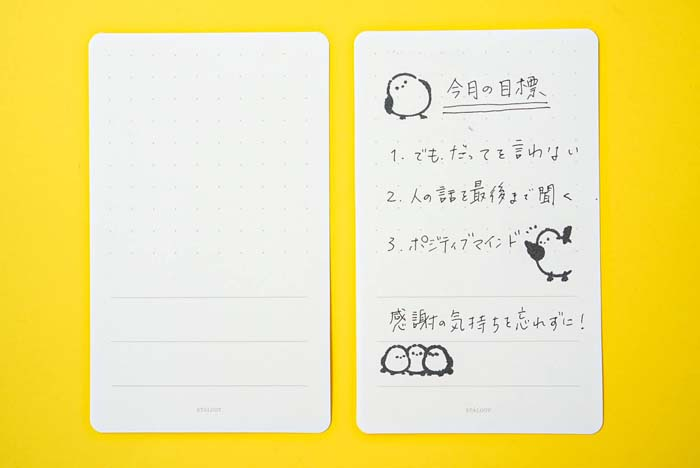 今月の目標
1. でも、だってを言わない
2. 人の話を最後まで聞く
3. ポジティブマインド
感謝の気持ちを忘れずに!